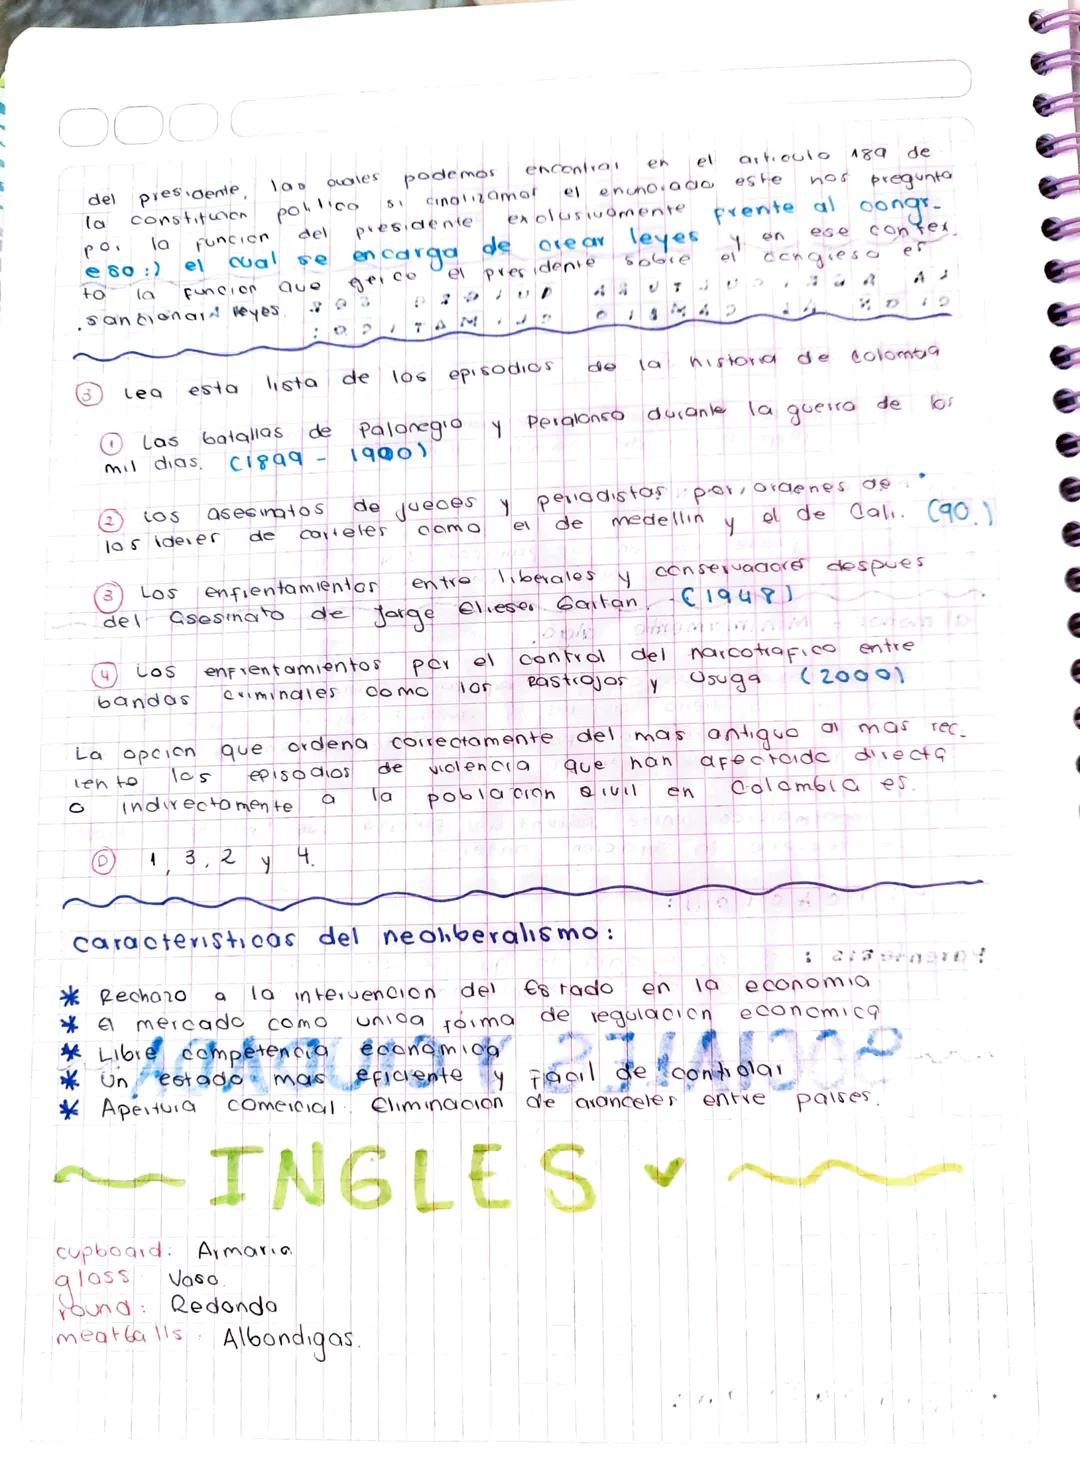 del presidente, las cuales podemos encontrar en el articulo 189 de
la constitucion politica si analizamos el enunciado este nos pregunta
por la funcion del presidente exclusivamente frente al congr-
eso :) el cual se encarga de crear leyes y en ese contex.
to la funcion que gerce el presidente sobre el congreso es
sancionar leyes.
③ Lea esta lista de los episodios de la historia de colombia
① Las batallas de Palonegro y Peralonso durante la guerra de los
mil dias. (1899 - 1900)
② Los asesinatos de jueces y periodistas por ordenes de
los lideres de carteles como el de medellin y el de Cali. (90.)
③ Los enfrentamientos entre liberales y conservadores despues
del Asesinato de Jorge Elieser Gaitan. (1948)
④ Los enfrentamientos por el control del narcotrafico entre
bandas criminales como los Rastrojos y Usuga (2000)
La opcion que ordena correctamente del mas antiguo al mas rec-
iente los episodios de violencia que han afectado directa
o indirectamente a la poblacion civil en Colombia es.
Ⓓ 1, 3, 2 y 4.
caracteristicas del neoliberalismo:
* Rechazo a la intervencion del Estado en la economia
* el mercado como unica forma de regulacion economica
* Libre competencia economica
* Un estado mas eficiente y facil de controlar
* Apertura comercial. Eliminacion de aranceles entre paises.
INGLES
cupboard: Armario.
glass: Vaso.
round: Redondo
meatballs: Albondigas.